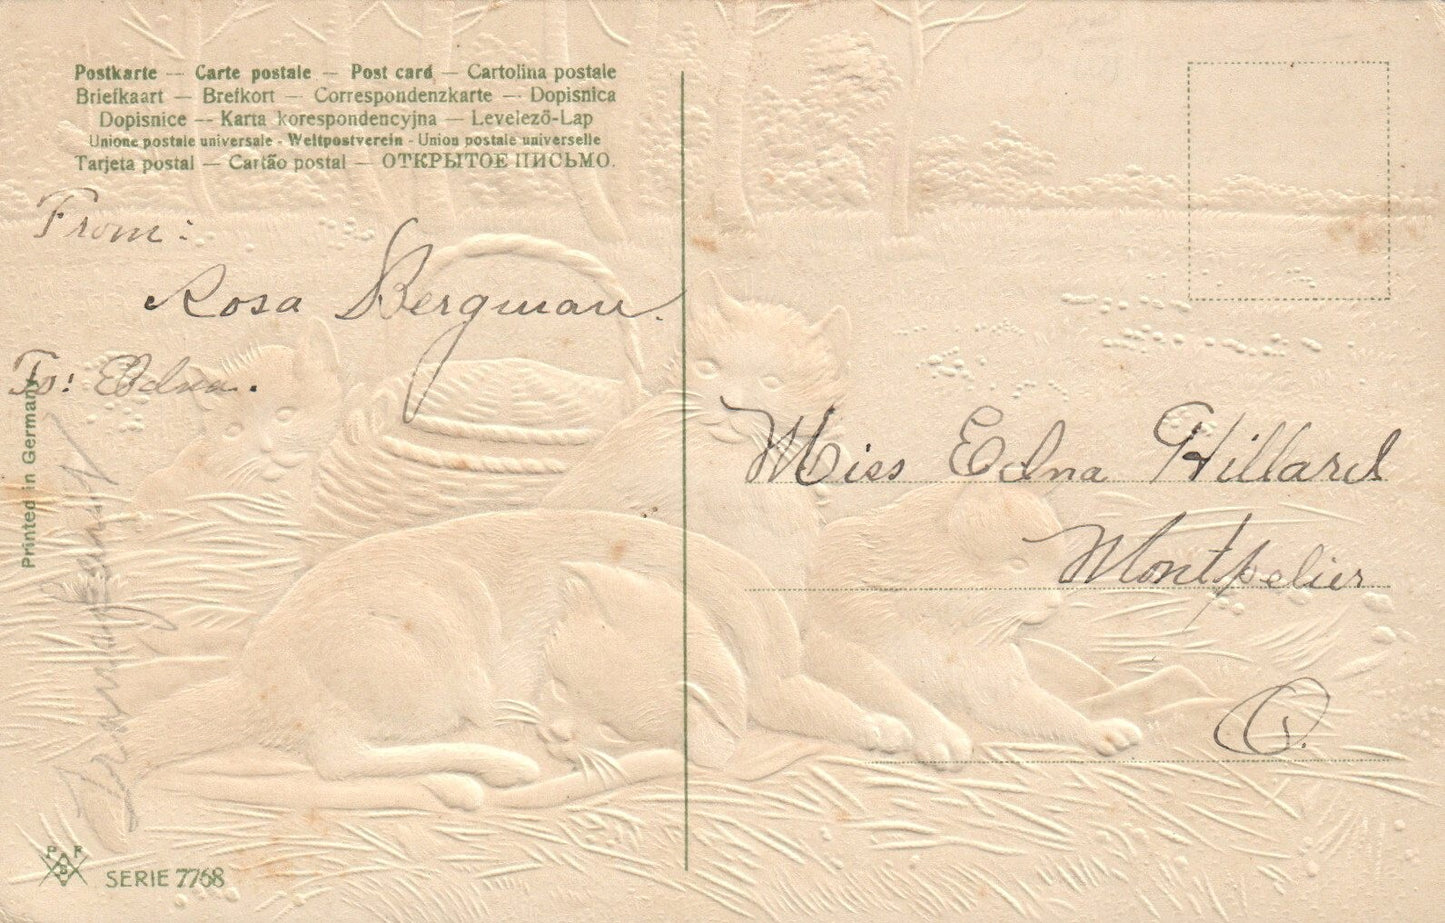 Postkarte — Carte postale — Post card — Cartolina postale
Briefkaart — Brefkort — Correspondenzkarte — Dopisnica
Dopisnice — Karta korespondencyjna — Levelező-Lap
Unione postale universale - Weltpostverein - Union postale universelle
Tarjeta postal — Cartão postal — ОТКРЫТОЕ ПИСЬМО.
From:
Rosa Bergman.
To: Edna.
Miss Edna Hillard
Montpelier
O.
Printed in Germany
P F B
SERIE 7768